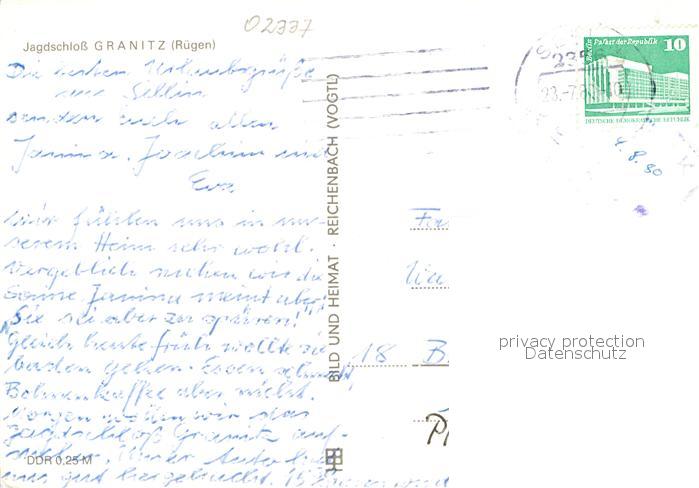 02337
Jagdschloß GRANITZ (Rügen)
Die besten Urlaubsgrüße
aus Sellin
senden Euch allen
Janina, Joachim und
Eva
Wir fühlen uns in un-
serem Heim sehr wohl.
Vergeblich suchen wir die
Sonne. Janina meint aber:
"Sie sei aber zu spüren!"
Gleich heute früh wollte sie
baden gehen. Essen schmeckt,
Bohnenkaffee aber nicht.
Morgen wollen wir das
Jagdschloß Granitz auf-
suchen. Unser Auto hat
uns gut hergebracht.
DDR 0,25 M
BILD UND HEIMAT · REICHENBACH (VOGTL)
Palast der Republik
10
DEUTSCHE DEMOKRATISCHE REPUBLIK
2356
23.-7.80
4.8.80
18 B
privacy protection
Datenschutz